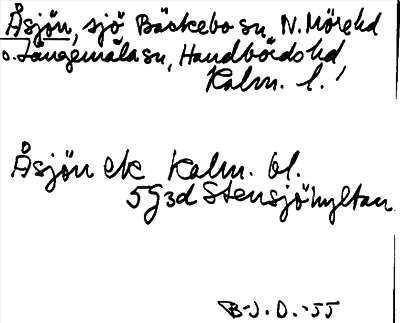 Åsjön, sjö Bäckebo sn, N. Möre hd
o. Långemåla sn, Handbörds hd
Kalm. l.
Åsjön ek Kalm. bl.
5G3d Stensjöhyltan
B-J. D. -55